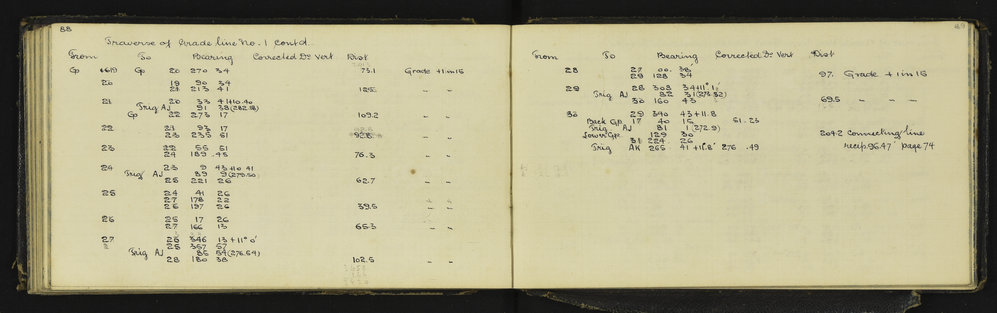 88
Traverse of Grade line No. 1 contd.
From To Bearing Corrected Do Vert Dist
Gp Gp 20 270 34 73.1 Grade +1 in 15
20 19 90 34
21 213 41
21 20 33 41
Trig AJ 91 38 (282.18)
Gp 22 273 17 109.2 " "
22 21 93 17
23 235 51 " "
23 22 55 51
24 189 45 76.3 " "
24 23 9 41
Trig AJ 89 9 (279.50)
25 221 26 62.7 " "
25 24 41 26
27 178 22
26 197 26 39.5 " "
26 25 17 26
27 166 13 65.3 " "
27 26 346 13 + 11° 0'
25 357 57
Trig AJ 85 54 (276.54)
28 180 38 102.5 " "
From To Bearing Corrected Do Vert Dist
28 27 00 38'
29 128 34 97. Grade +1 in 15
29 28 308 34 + 11° 1'
Trig AJ 82 31 (273.32)
30 160 43 69.5 " " "
30 29 340 43 + 11.8
Back Gp 17 40 15 51.23
Trig AJ 81 1 (272.9)
Lower Gp 129 30
31 224 26 204.2 Connecting line
Trig AK 265 41 + 11.8' 276.49 recip 96.47' page 74